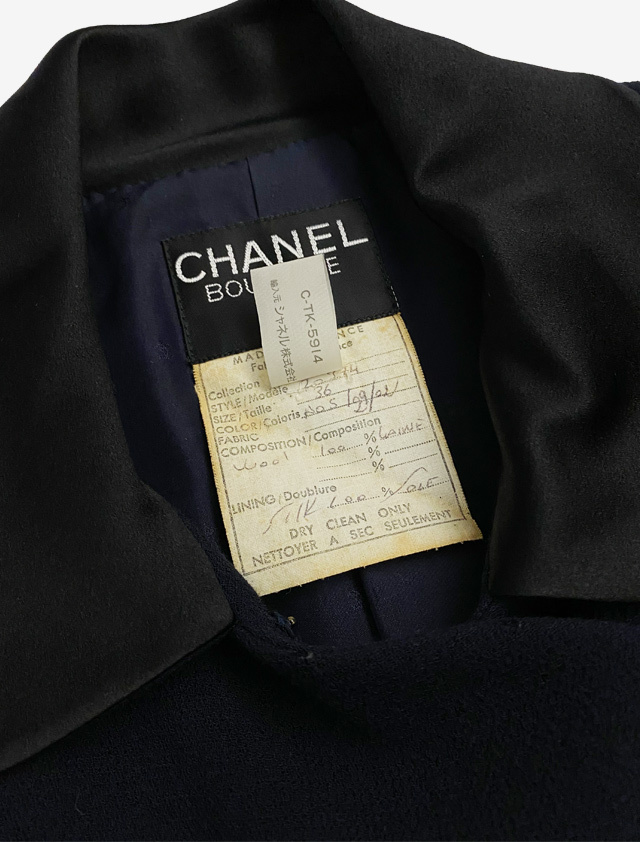 CHANEL
BOU E
C-TK-5914
輸入元 シャネル株式会社
MAD NCE
Fa ce
Collection
STYLE/Modèle
SIZE/Taille 36
COLOR/Coloris
FABRIC
COMPOSITION/Composition
Wool 100 % Laine
%
%
LINING/Doublure
Silk 100 % Soie
DRY CLEAN ONLY
NETTOYER A SEC SEULEMENT